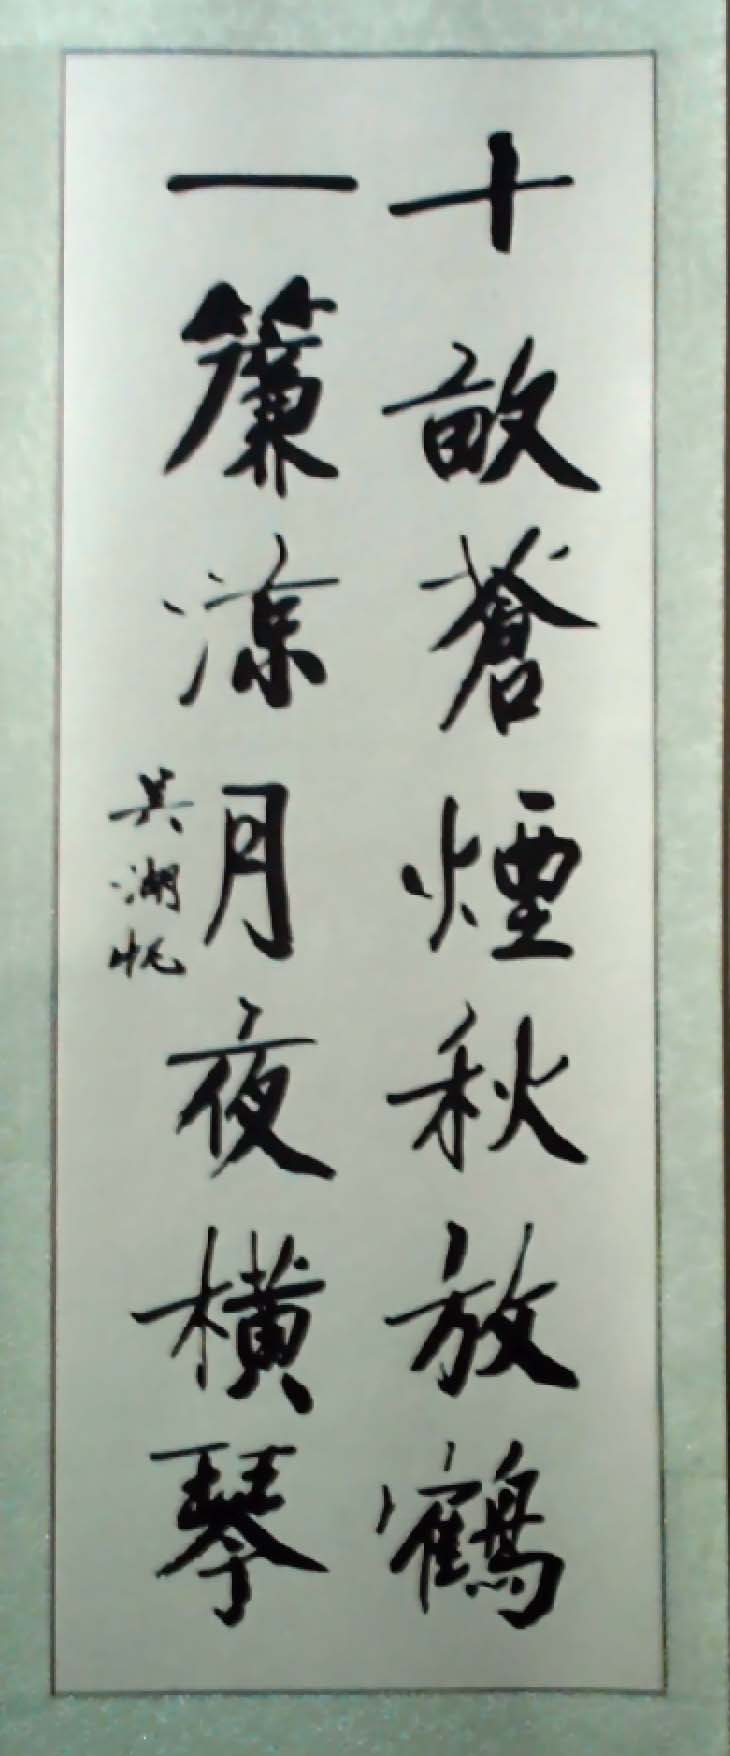 十畝蒼煙秋放鶴
一簾涼月夜橫琴
吴湖帆